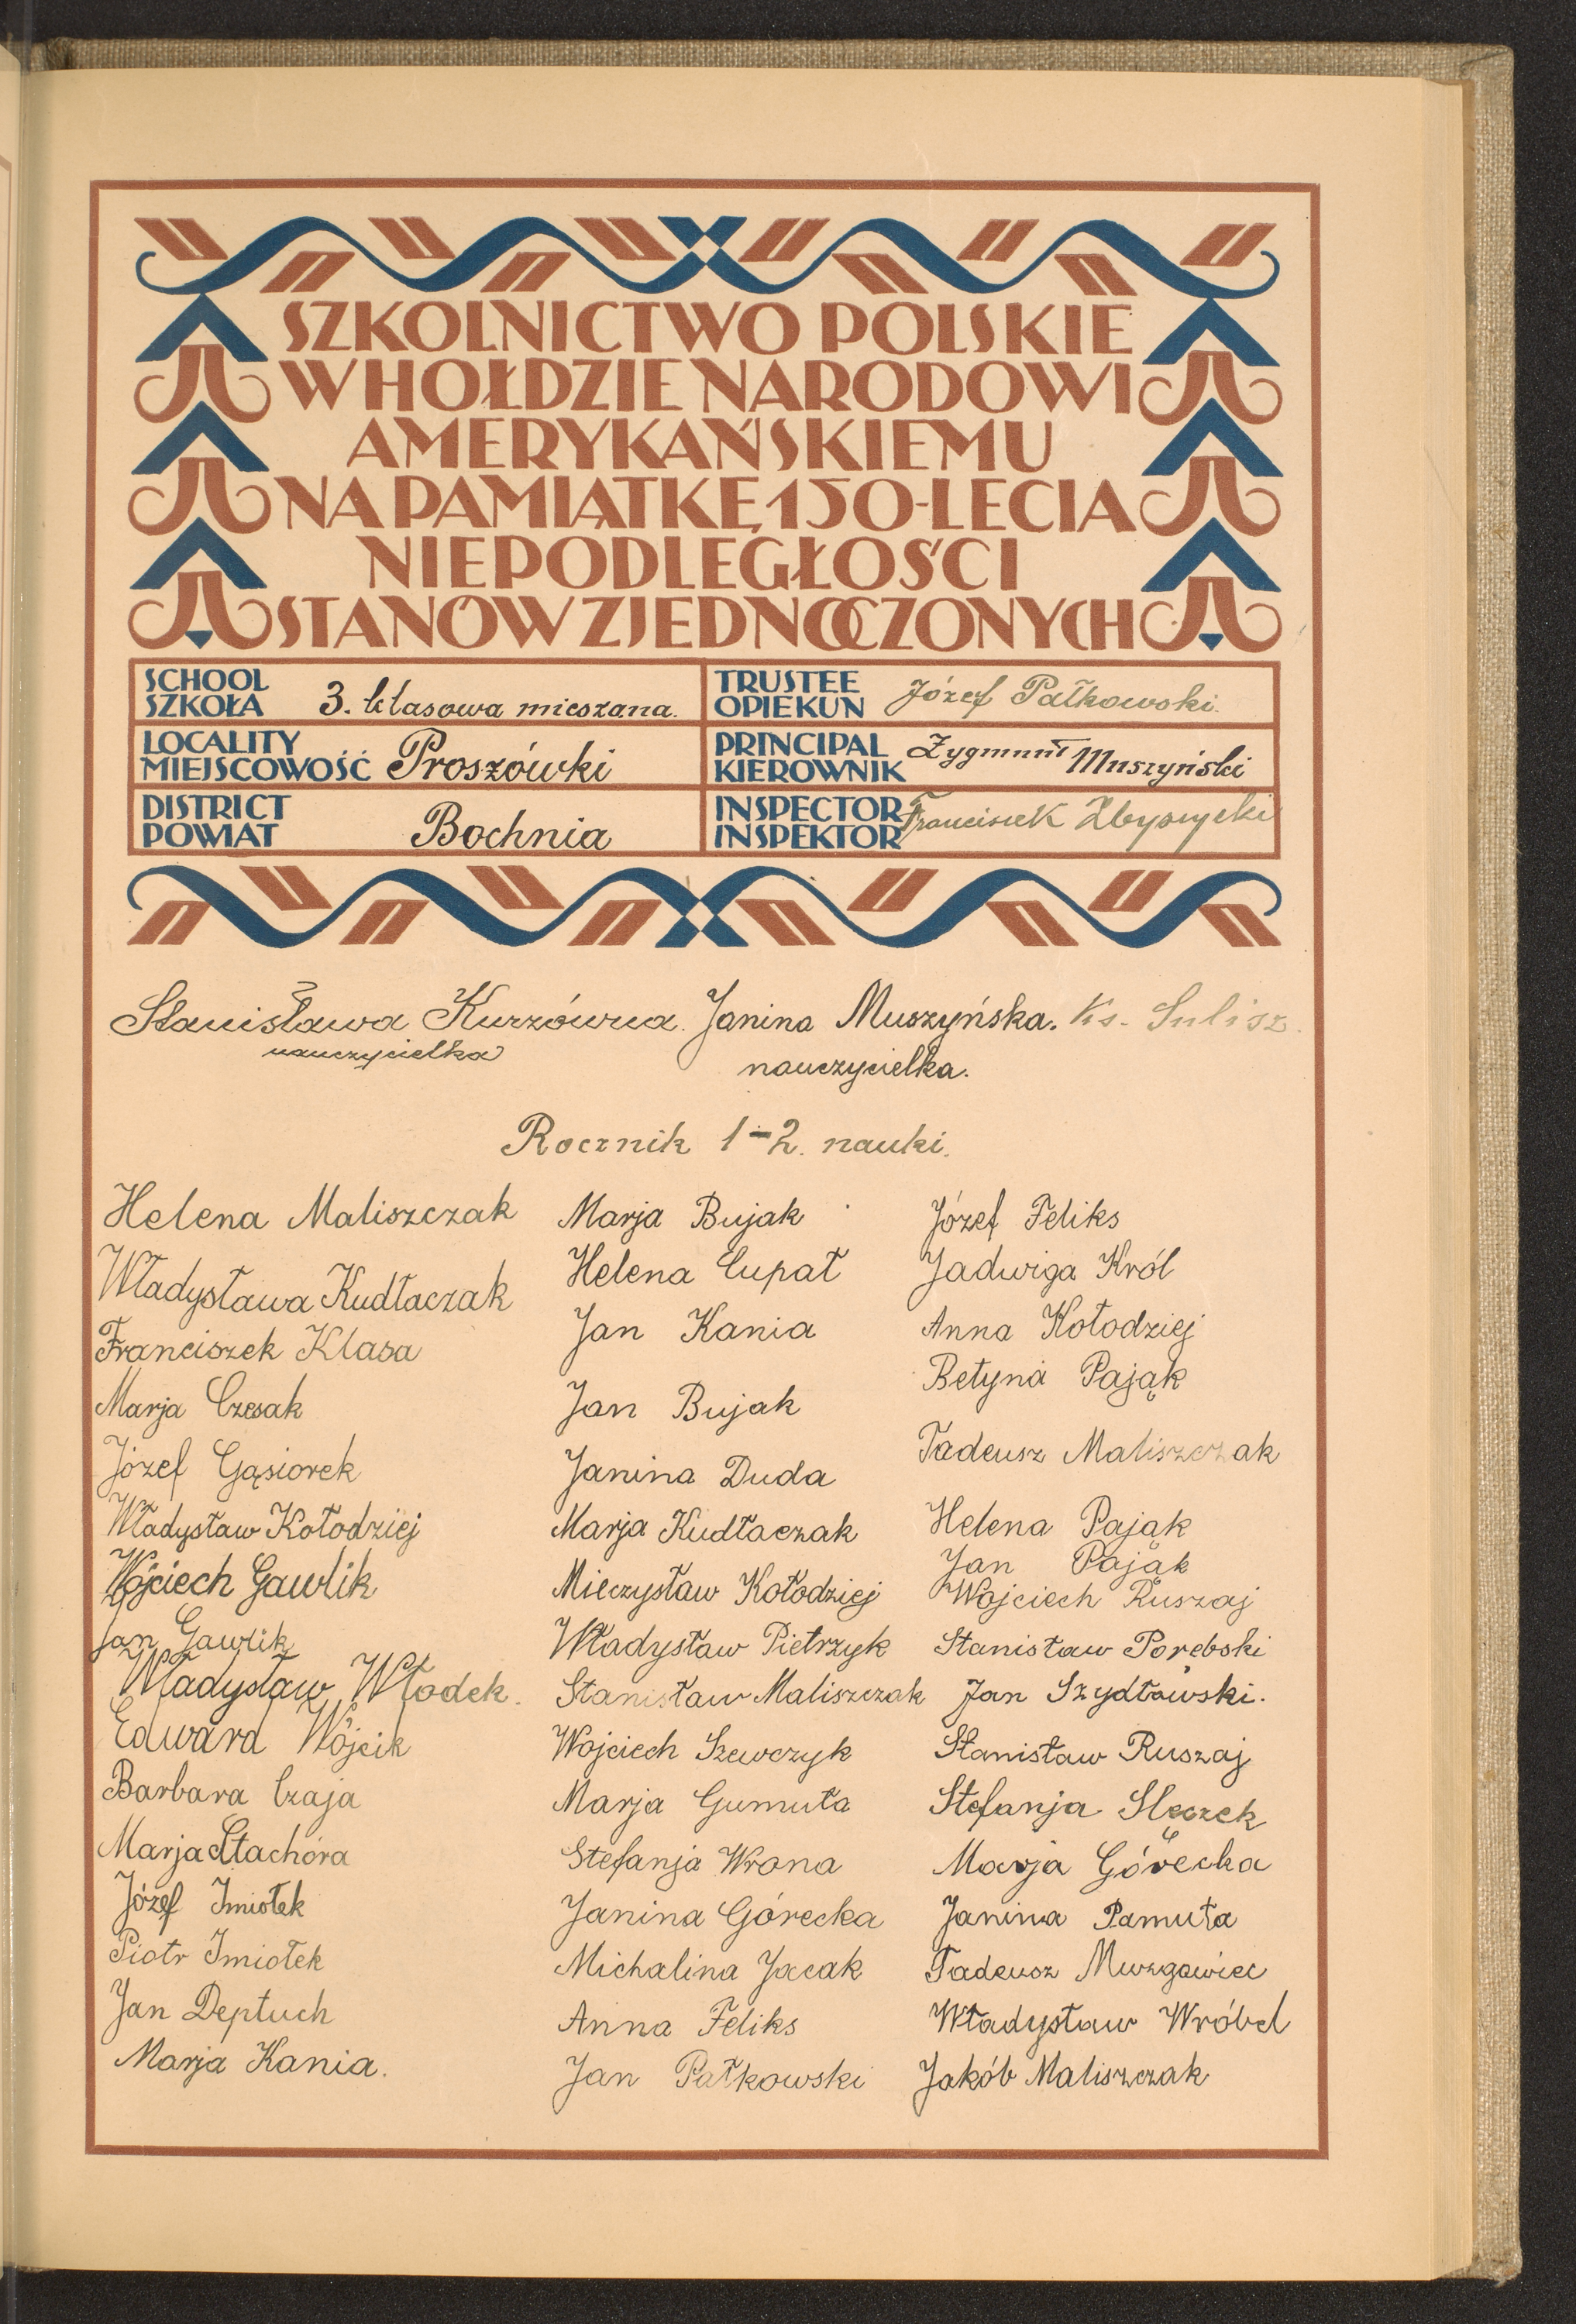 SZKOLNICTWO POLSKIE
W HOŁDZIE NARODOWI
AMERYKAŃSKIEMU
NA PAMIĄTKĘ 150-LECIA
NIEPODLEGŁOŚCI
STANÓW ZJEDNOCZONYCH
SCHOOL
SZKOŁA 3. klasowa mieszana.
TRUSTEE
OPIEKUN Józef Pałkowski.
LOCALITY
MIEJSCOWOŚĆ Proszówki
PRINCIPAL
KIEROWNIK Zygmunt Muszyński
DISTRICT
POWIAT Bochnia
INSPECTOR
INSPEKTOR Franciszek
Stanisława Kurzówna. Janina Muszyńska. Ks. Sulisz.
nauczycielka
nauczycielka.
Rocznik 1-2. nauki.
Helena Maliszczak
Władysława Kudłaczak
Franciszek Klasa
Marja Czesak
Józef Gąsiorek
Władysław Kołodziej
Wójciech Gawlik
Jan Gawlik
Władysław Włodek.
Edward Wójcik
Barbara Czaja
Marja Stachóra
Józef Imiołek
Piotr Imiołek
Jan Deptuch
Marja Kania.
Marja Bujak
Helena Cupał
Jan Kania
Jan Bujak
Janina Duda
Marja Kudłaczak
Mieczysław Kołodziej
Władysław Pietrzyk
Stanisław Maliszczak
Wojciech Szewczyk
Marja Gumuła
Stefanja Wrona
Janina Górecka
Michalina Jacak
Anna Feliks
Jan Pałkowski
Józef Feliks
Jadwiga Król
Anna Kołodziej
Betyna Pająk
Tadeusz Maliszczak
Helena Pająk
Jan Pająk
Wojciech Ruszaj
Stanisław Porębski
Jan Szydłowski.
Stanisław Ruszaj
Stefanja Slęczek
Marja Górecka
Janina Pamuła
Tadeusz Murzgawiec
Władysław Wróbel
Jakób Maliszczak